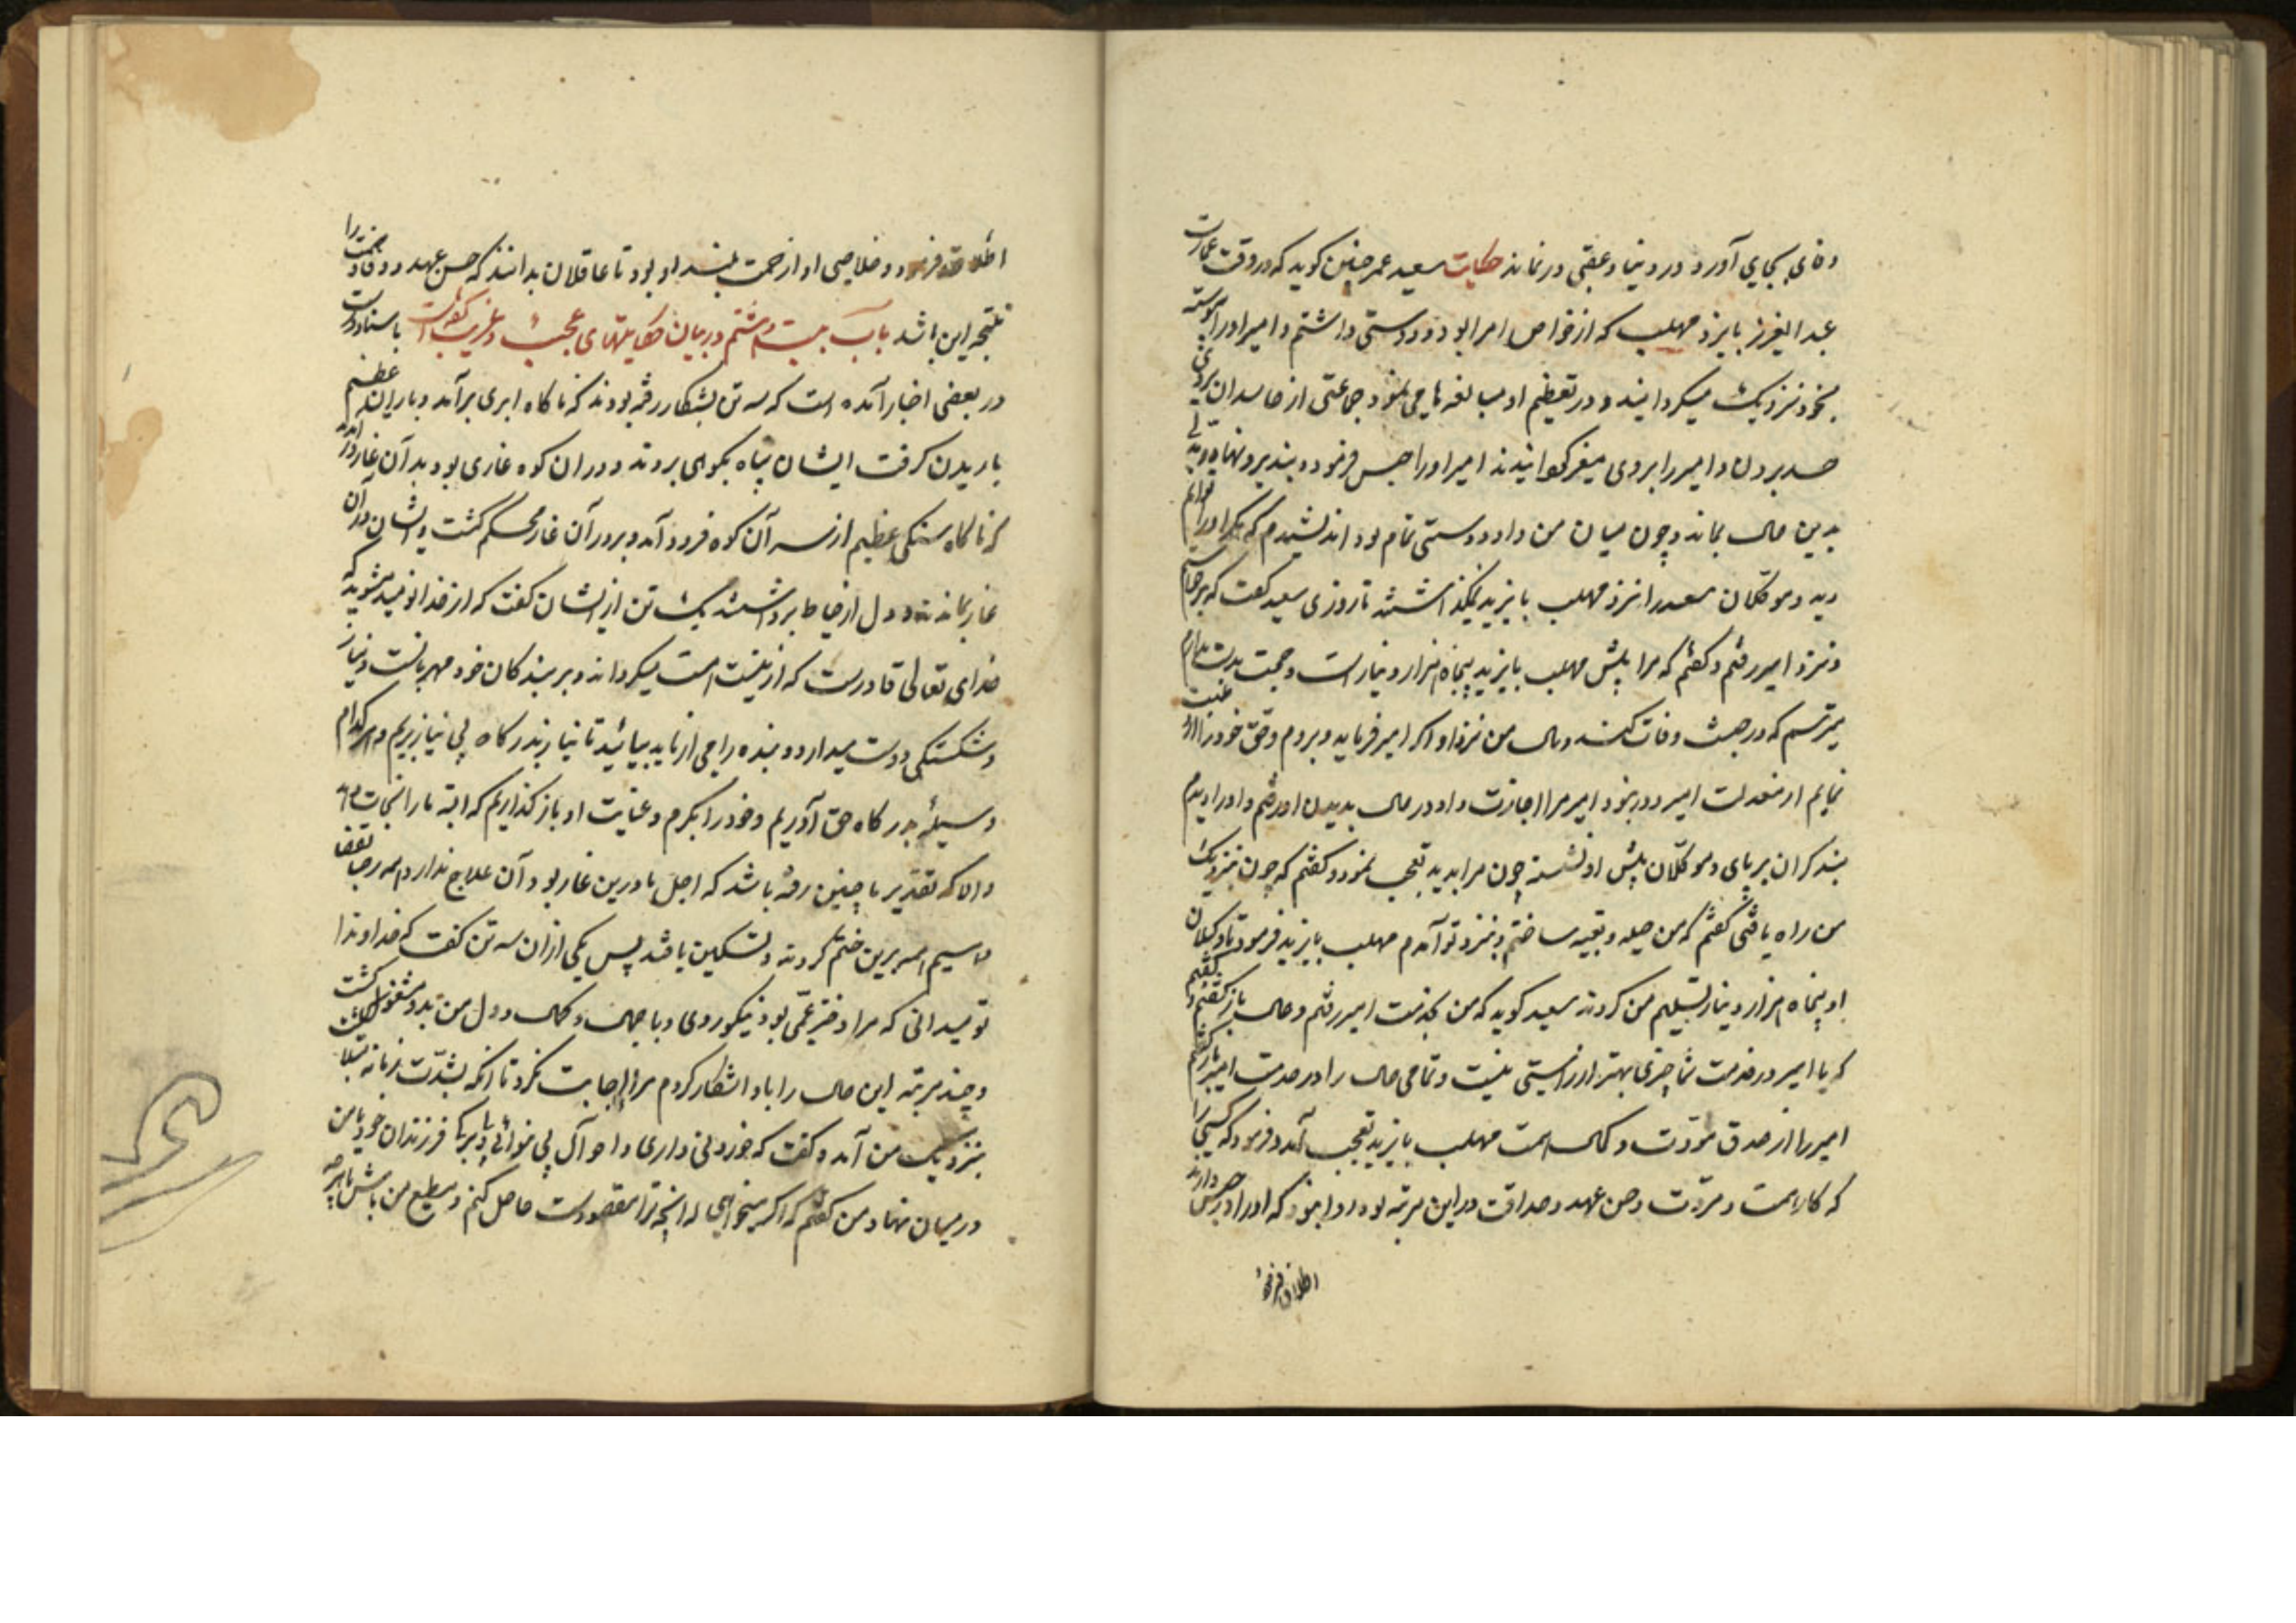 وفای بجای آورد در دنیا و عقبی در نماند حکایت سعید عمر چنین کوید که در وقت عمارت
عبد العزیز با یزد مهلب که از خواص امرا بود دوستی داشتم و امیر او را پیوسته
بخود نزدیک میکردانید و در تعظیم او مبالغه ها می نمود جماعتی از حاسدان بروی
حسد بردن و امیر را بروی متغیر کردانیدند امیر او را حبس فرمود و بند بر و نهاد
بدین حال بماند و چون میان من و او دوستی تمام بود اندیشیدم که او را
دید و موکلان سعید را نزد مهلب با یزید نمیکذاشتند تا روزی سعید کفت که برخاستم
و نزد امیر رفتم و کفتم که مرا پیش مهلب با یزید پنجاه هزار دینار است و حجت بدست دارم
میترسم که در حبس وفات کند و مال من نزد او اکر امیر فرماید و بروم و حق خود را
نمایم از معدلت امیر دور نبود امیر مرا اجازت داد در حال بدیدن او رفتم و او را دیدم
بند کران بر پای و موکلان پیش او نشسته چون مرا بدید تعجب نمود و کفتم که چون بنزدیک
من راه یافتی کفتم که من حیله و تعبیه ساختم و بنزد تو آمدم مهلب با یزید فرمود تا وکیلان
او پنجاه هزار دینار تسلیم من کردند سعید کوید که من بخدمت امیر رفتم و حال باز کفتم
که یا امیر در خدمت شما چیزی بهتر از راستی نیست و تمامی حال را در خدمت امیر
امیر را از صدق مودت و کمال همت مهلب با یزید تعجب آمد و فرمود که کسی را
که کار همت و مروت و حسن عهد و صداقت در این مرتبه بود روا نبود که او را در حبس دارند
اطلاق فرمود
اطلاق فرمود و خلاصی او از حمت بلند او بود تا عاقلان بدانند که حسن عهد و وفا و همت را
نتیجه این باشد باب بیست و هشتم در بیان حکایتهای عجیب و غریب باسناد درست
در بعضی اخبار آمده است که سه تن بشکار رفته بودند که ناکاه ابری برآمد و باران عظیم
باریدن کرفت ایشان پناه بکوهی بردند و در آن کوه غاری بود بدآن غار در آمدند
که ناکاه سنکی عظیم از سر آن کوه فرود آمد و بر در آن غار محکم کشت و ایشان در آن
غار بماندند و دل از حیاط برداشتند یک تن از ایشان کفت که از خدا نومید مشوید که
خدای تعالی قادرست که از نیست هست میکرداند و بر بندکان خود مهربانست و نیاز
و شکستکی دوست میدارد و بنده را می ازناید بیائید تا نیاز بدرکاه بی نیاز بریم و هر کدام
وسیلهٔ بدرکاه حق آوریم و خود را بکرم و عنایت او باز کذاریم که البته ما را نجات دهد
و الا که تقدیر ما چنین رفته باشد که اجل ما درین غار بود آن علاج ندارد
هر سه برین ختم کردند و تسکین یافتند پس یکی از آن سه تن کفت که خداوندا
تو میدانی که مرا دختر عمی بود نیکوروی و با جمال و کمال و دل من بدو مشغول کشت
و چند مرتبه این حال را با و اشکار کردم مرا اجابت نکرد تا آنکه بشدت زمانه مبتلا
بنزدیک من آمد و کفت که خوردنی داری و احوال بی نوائی فرزندان خود با من
در میان نهاد من کفتم که اکر میخواهی که انچه ترا مقصودست حاصل کنم و مطیع من باش